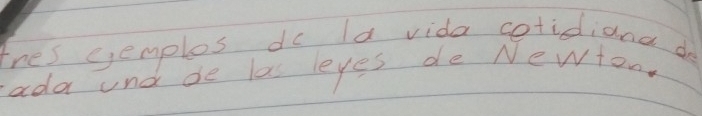 tres ejemplos de la vida cotidiana de
cada una de las leyes de Newton.